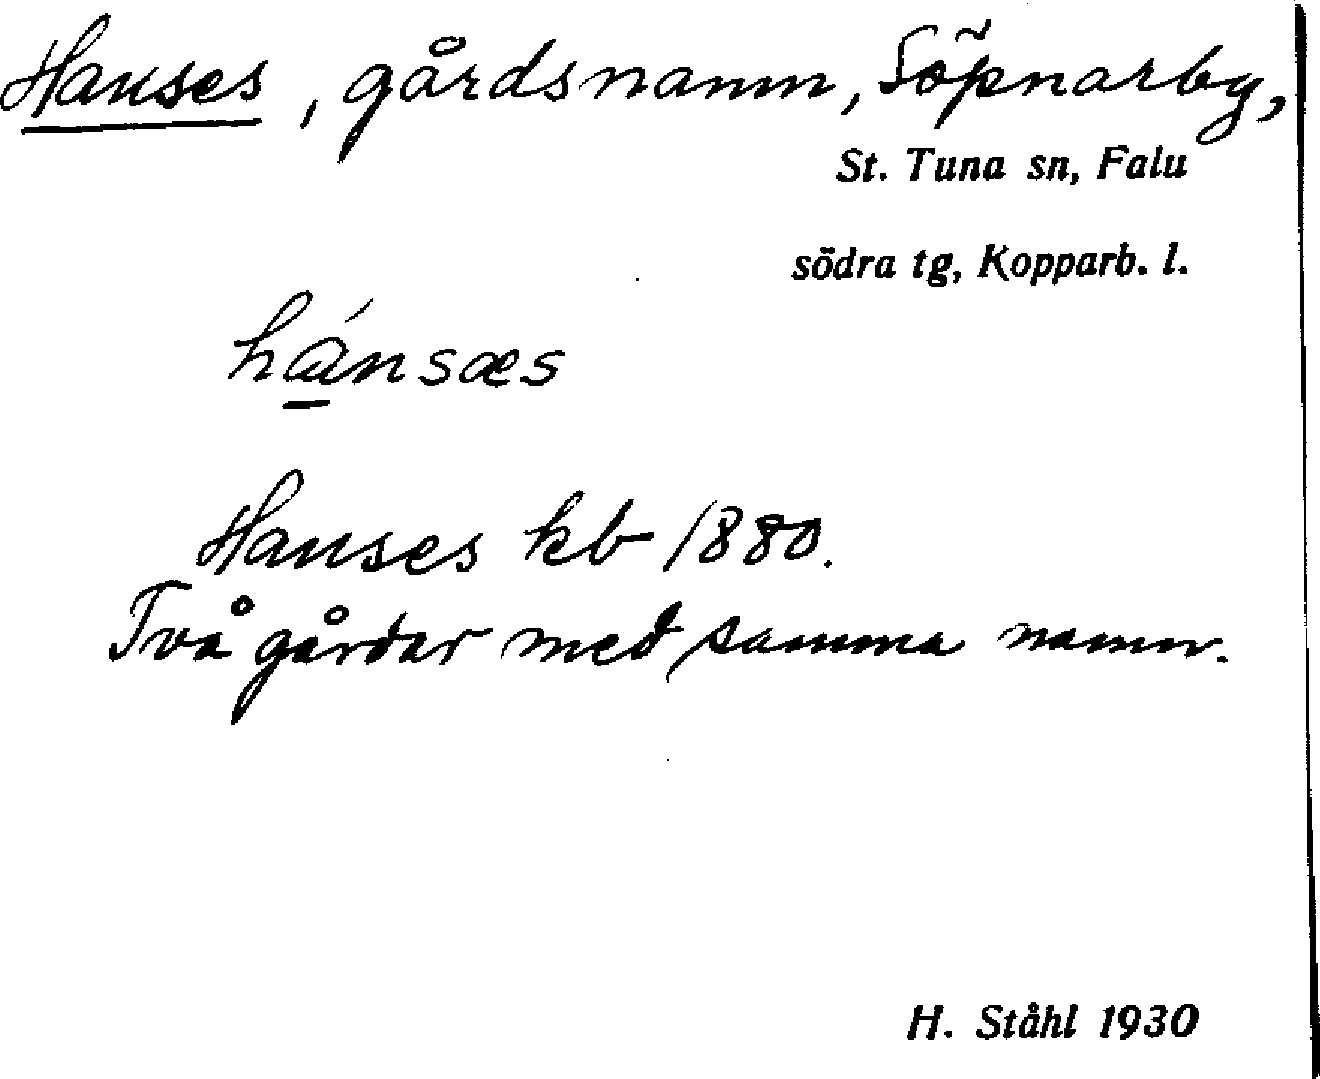 Hanses, gårdsnamn, Söpnarby,
St. Tuna sn, Falu
södra tg, Kopparb. l.
hánsæs
Hanses kb 1880.
Två gårdar med samma namn.
H. Ståhl 1930